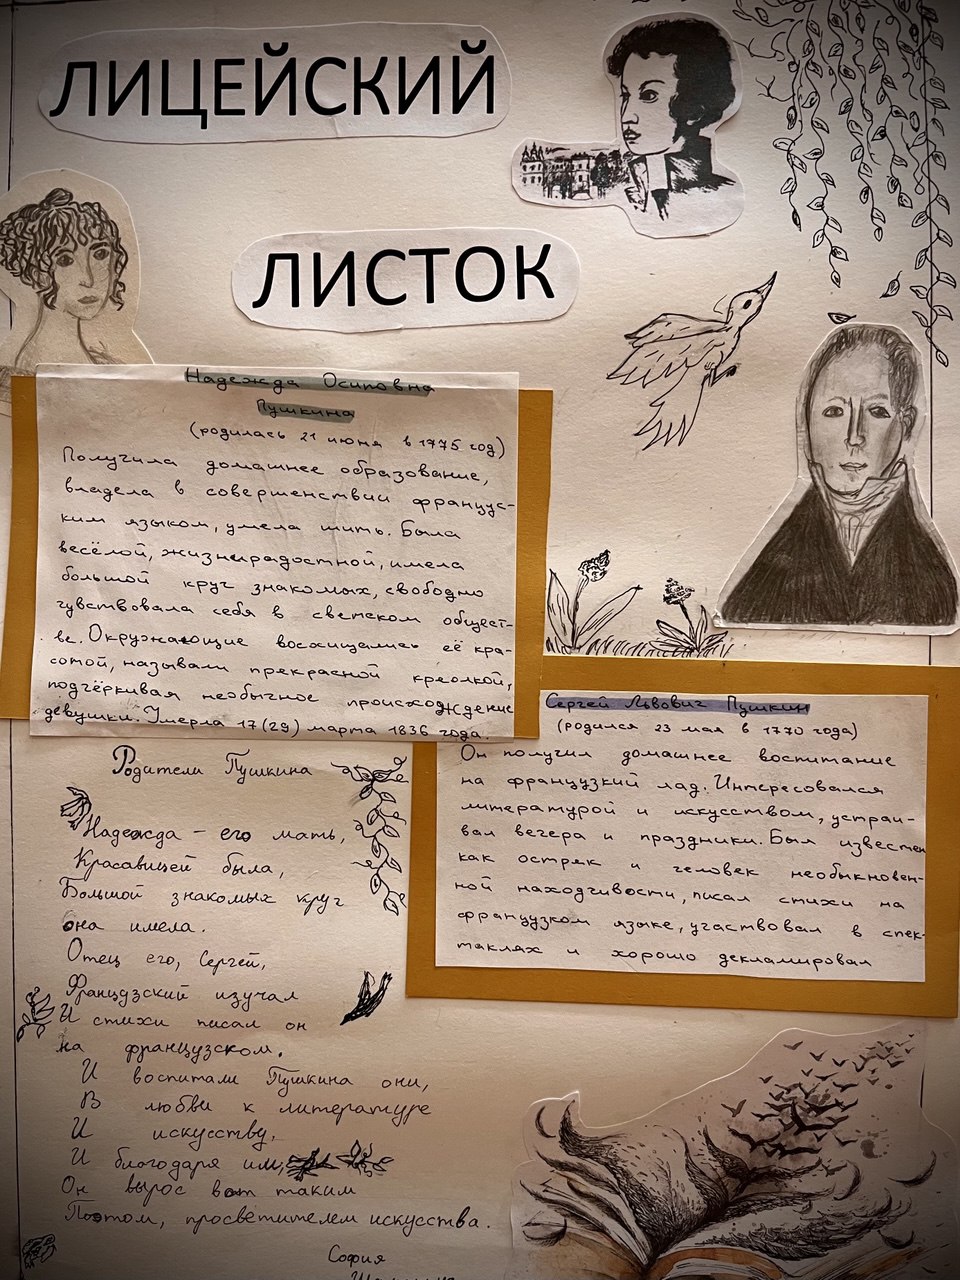 ЛИЦЕЙСКИЙ
ЛИСТОК
Надежда Осиповна
Пушкина
(родилась 21 июня в 1775 год)
Получила домашнее образование,
владела в совершенстви француз-
ким языком, умела шить. Была
весёлой, жизнерадостной, имела
большой круг знакомых, свободно
чувствовала себя в светском общест-
ве. Окружающие восхищались её кра-
сотой, называли прекрасной креолкой,
подчёркивая необычное происхождение
девушки. Умерла 17(29) марта 1836 года.
Сергей Львович Пушкин
(родился 23 мая в 1770 года)
Он получил домашнее воспитание
на французкий лад. Интересовался
литературой и искусством, устраи-
вал вечера и праздники. Был известен
как остряк и человек необыкновен-
ной находчивости, писал стихи на
французком языке, участвовал в спек-
таклях и хорошо декламировал
Родители Пушкина
Надежда - его мать,
Красавицей была,
Большой знакомых круг
она имела.
Отец его, Сергей,
Французский изучал
И стихи писал он
на французском.
И воспитали Пушкина они,
В любви к литературе
И искусству,
И благодаря им,
Он вырос вот таким
Поэтом, просветителем искусства.
София